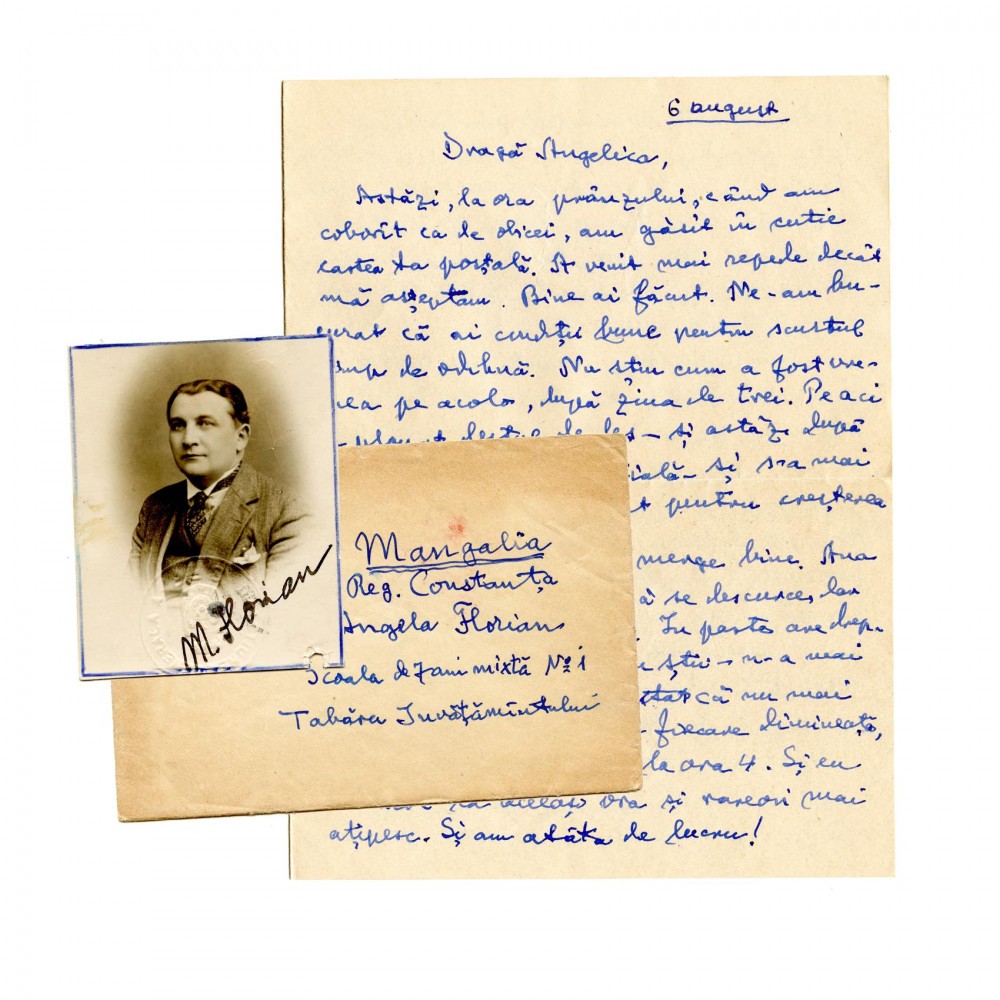 6 august
Dragă Angelica,
Astăzi, la ora prânzului, când am
coborît ca de obicei, am găsit în cutie
cartea ta poștală. A venit mai repede decât
mă așteptam. Bine ai făcut. Ne-am bu-
curat că ai condiții bune pentru scurtul
de odihnă. Nu știu cum a fost vre-
mea pe acolo, după ziua de trei. Pe aci
destul de des - și astăzi după
- și s-a mai
pentru creșterea
merge bine. Ana
să se descurce, dar
În parte are drep-
știi - n-a mai
că nu mai
fiecare dimineață,
la ora 4. Și eu
la aceeași ora și rareori mai
ațipesc. Și am atâta de lucru!
M. Florian
Mangalia
Reg. Constanța
Angela Florian
Scoala de 7 ani mixtă No 1
Tabăra Învățămîntului